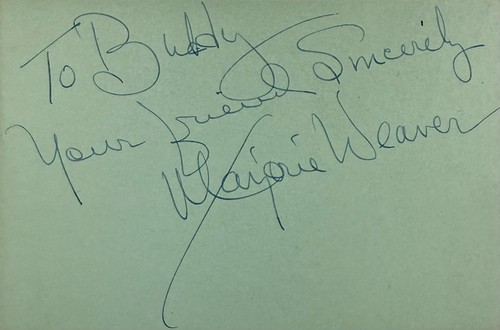 To Buddy
Your friend Sincerely
Marjorie Weaver